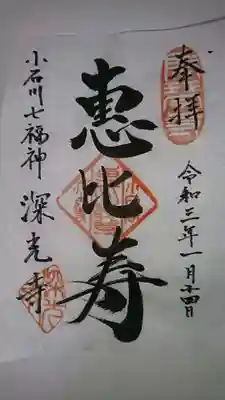 奉拝
令和三年一月十四日
恵比寿
小石川七福神
深光寺